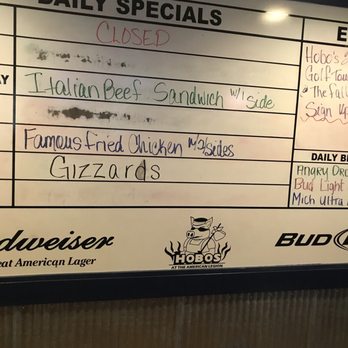 DAILY SPECIALS
CLOSED
Italian Beef Sandwich w/1 side
Famous Fried Chicken w/2 sides
Gizzards
Hobo's
Golf Tou
@ The Fall
Sign Up
DAILY B
Angry Orc
Bud Light
Mich Ultra
dweiser
eat American Lager
HOBOS
AT THE AMERICAN LEGION
BUD